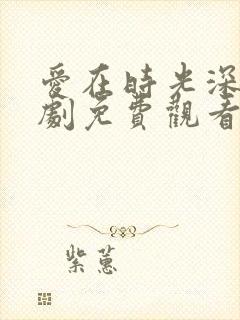 愛在時光深
劇免費觀看
紫蕙